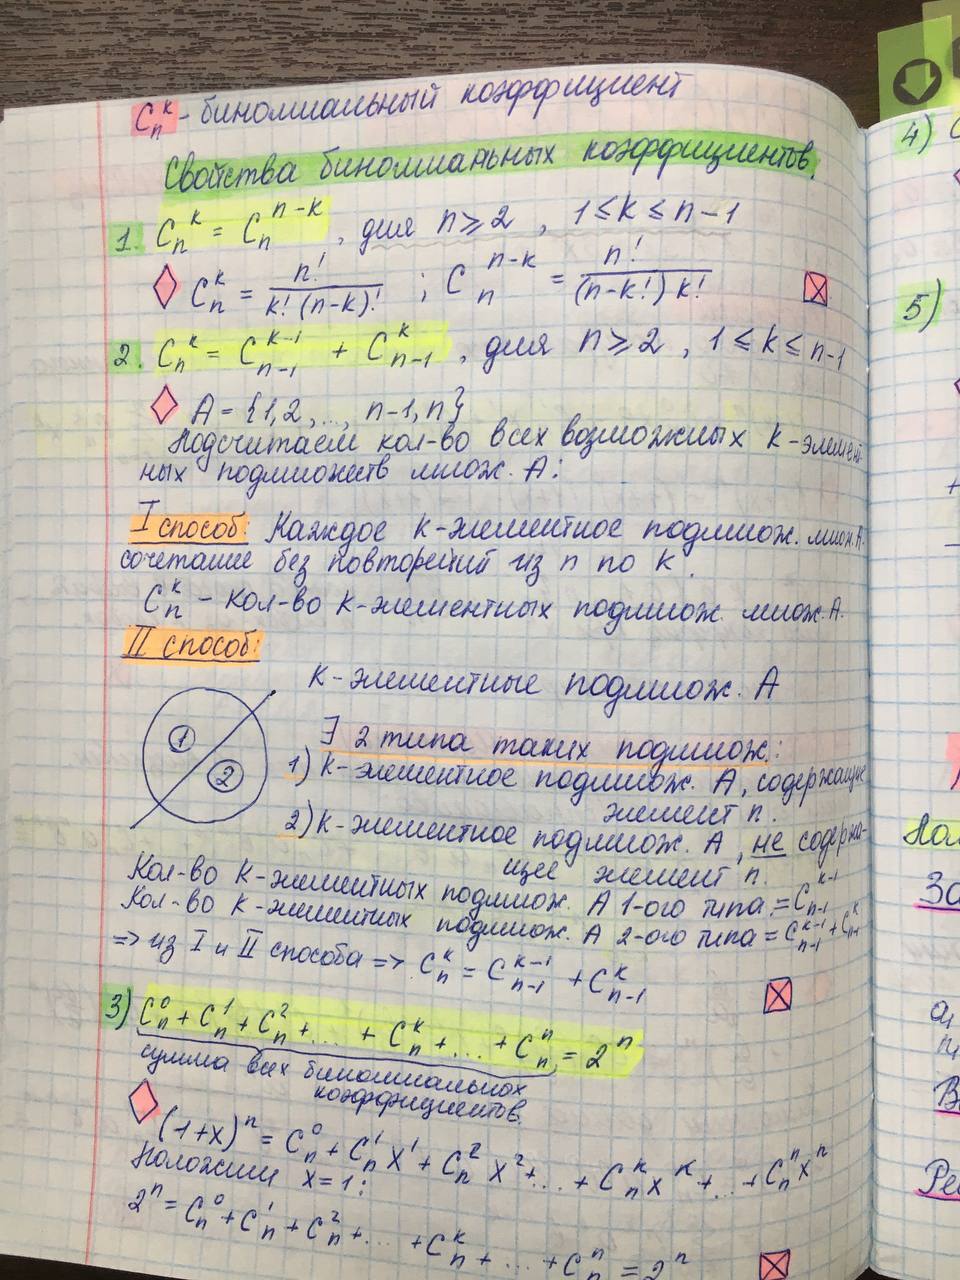 C_n^k - биномиальный коэффициент
Свойства биномиальных коэффициентов.
1. C_n^k = C_n^{n-k}, для n ≥ 2, 1 ≤ k ≤ n-1
◊ C_n^k = n! / k! (n-k)! ; C_n^{n-k} = n! / (n-k!) k! ⊠
2. C_n^k = C_{n-1}^{k-1} + C_{n-1}^k, для n ≥ 2, 1 ≤ k ≤ n-1
◊ A = {1, 2, ..., n-1, n}
Подсчитаем кол-во всех возможных k-элемент-
ных подмножеств множ. A:
I способ: Каждое k-элементное подмнож. множ. A.
сочетание без повторений из n по k.
C_n^k - кол-во k-элементных подмнож. множ. A.
II способ:
k-элементные подмнож. A
1
2
∃ 2 типа таких подмнож.:
1) k-элементное подмнож. A, содержащие
элемент n.
2) k-элементное подмнож. A, не содержа-
щее элемент n.
Кол-во k-элементных подмнож. A 1-ого типа = C_{n-1}^{k-1}
Кол-во k-элементных подмнож. A 2-ого типа = C_{n-1}^{k-1} + C_{n-1}^k
=> из I и II способа => C_n^k = C_{n-1}^{k-1} + C_{n-1}^k ⊠
3) C_n^0 + C_n^1 + C_n^2 + ... + C_n^k + ... + C_n^n = 2^n
сумма всех биномиальных
коэффициентов.
◊ (1+x)^n = C_n^0 + C_n^1 x^1 + C_n^2 x^2 + ... + C_n^k x^k + ... + C_n^n x^n
Положим x = 1:
2^n = C_n^0 + C_n^1 + C_n^2 + ... + C_n^k + ... + C_n^n = 2^n ⊠
4)
5)